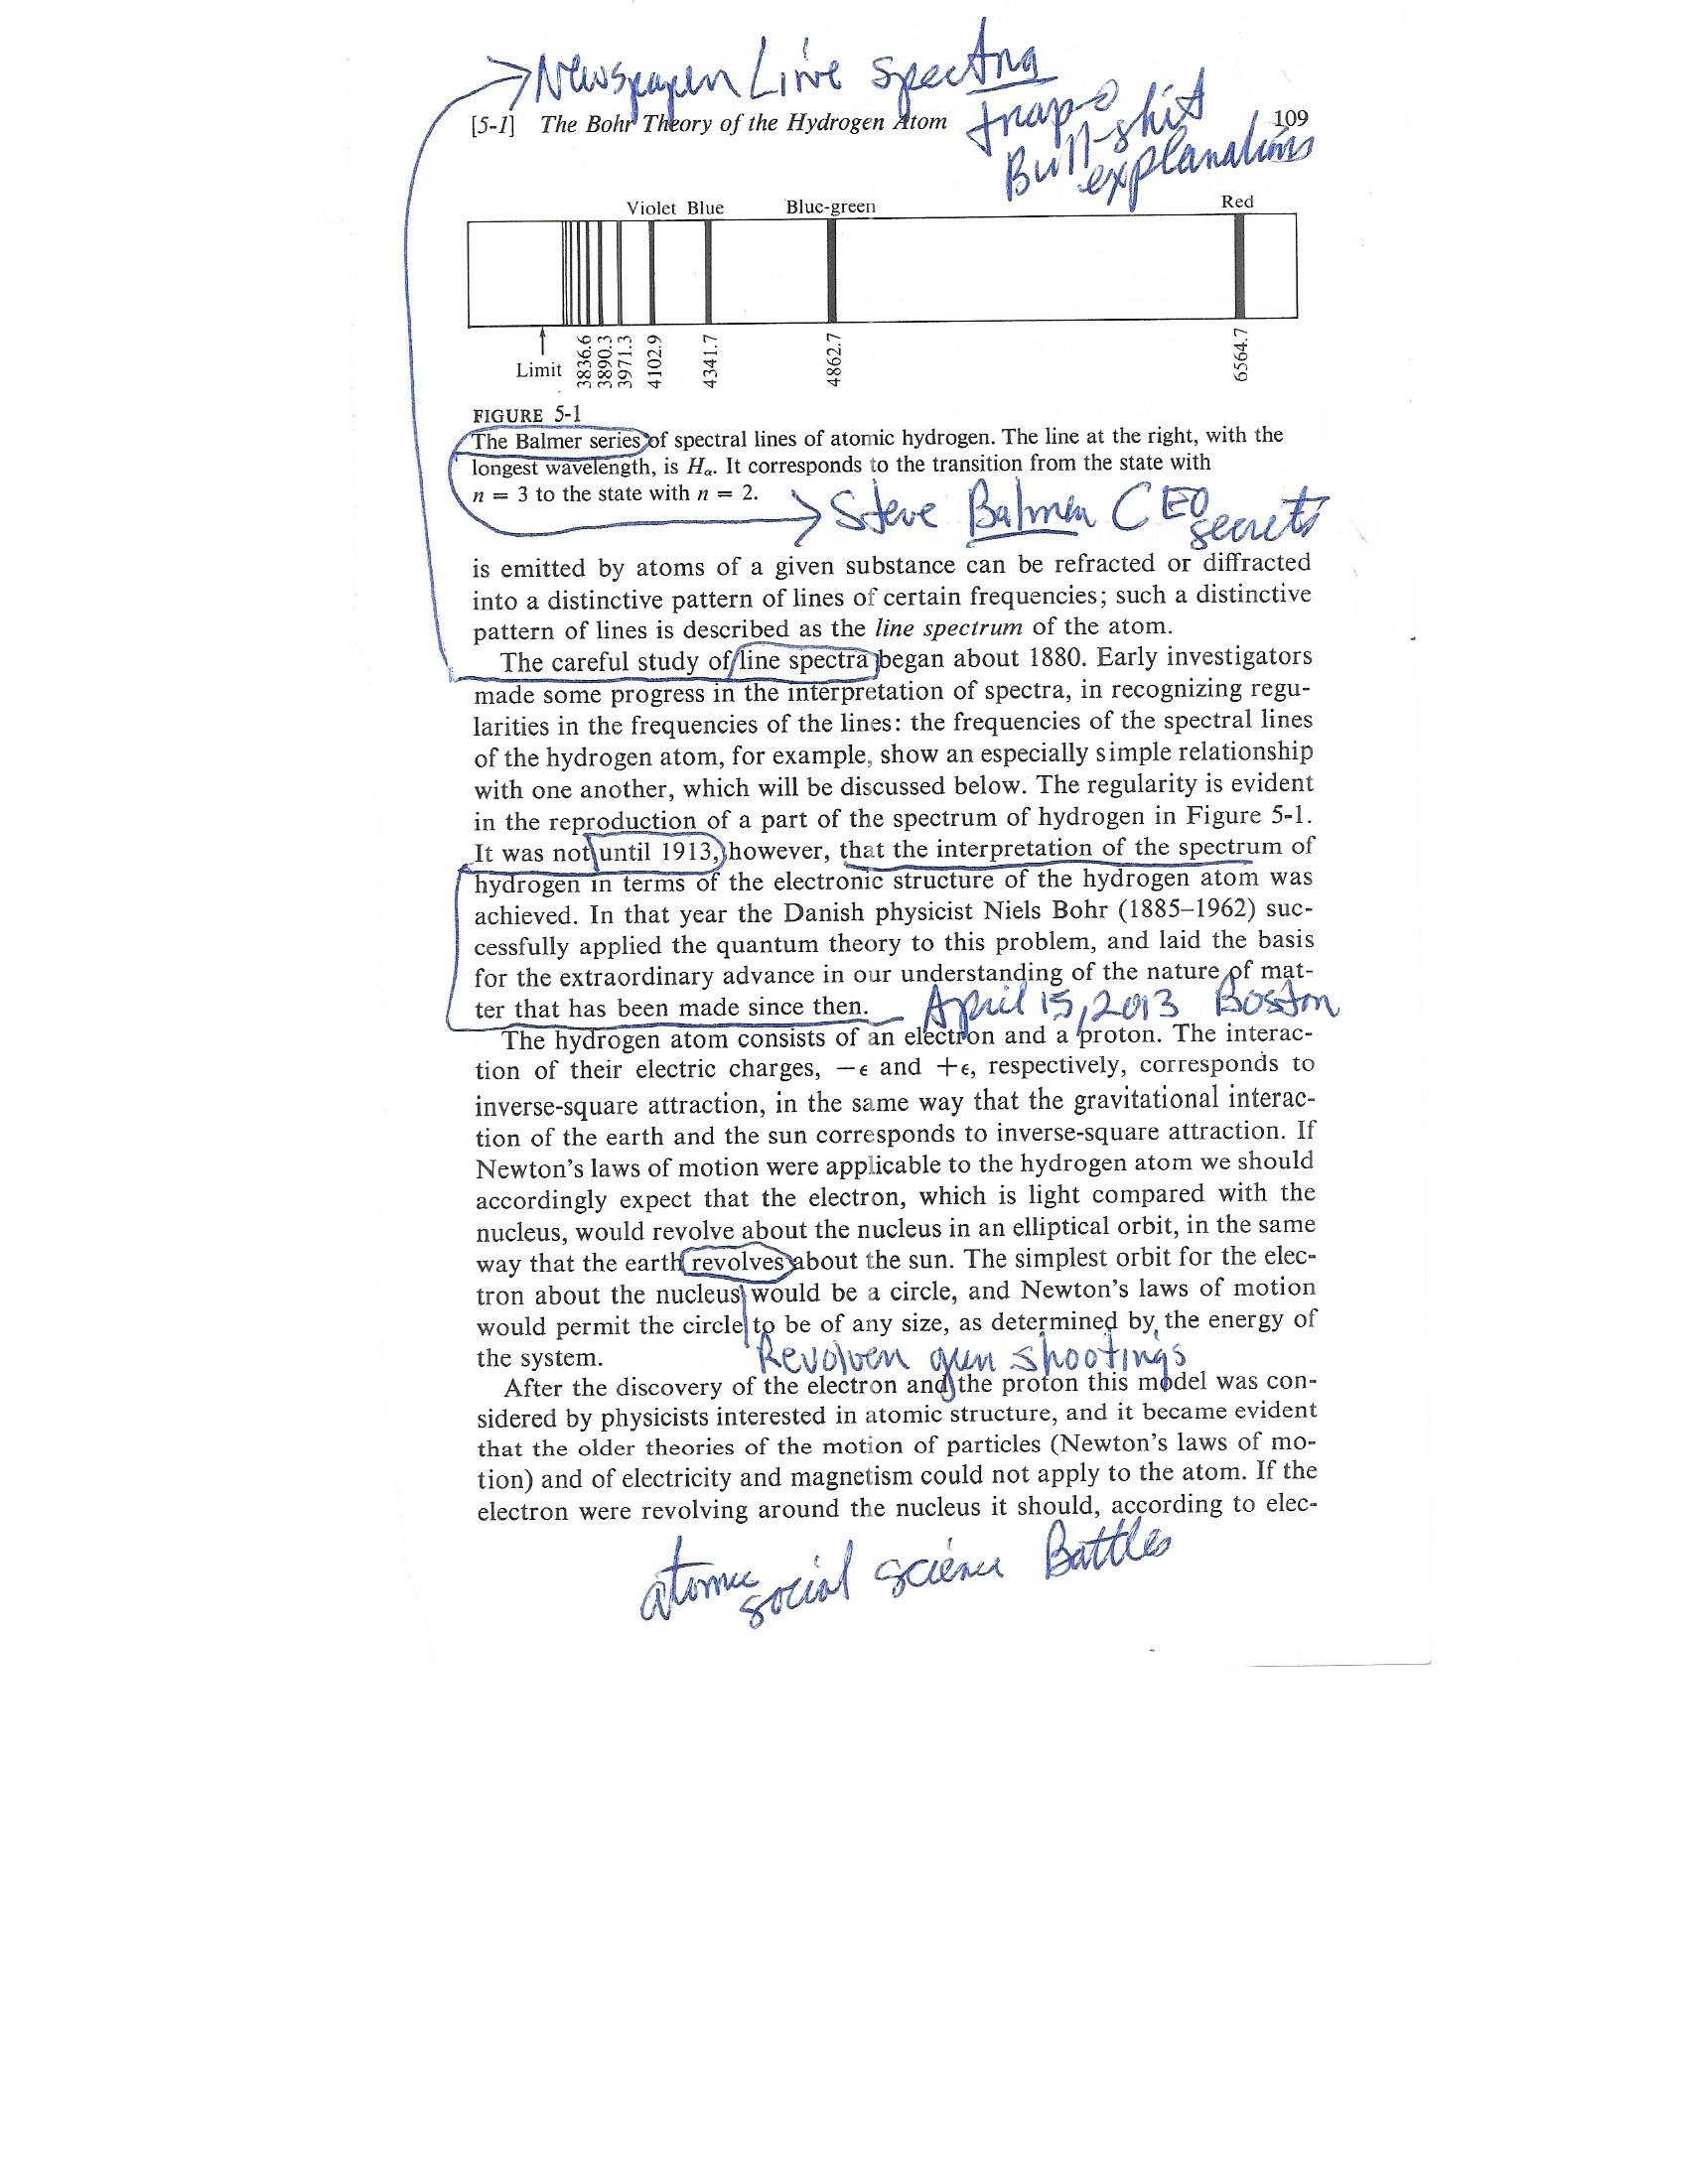 Newspaper Line spectra
trap-o
Bull-shit
explanations
[5-1] The Bohr Theory of the Hydrogen Atom 109
Violet Blue Blue-green Red
Limit 3836.6 3890.3 3971.3 4102.9 4341.7 4862.7 6564.7
FIGURE 5-1
The Balmer series of spectral lines of atomic hydrogen. The line at the right, with the
longest wavelength, is Hα. It corresponds to the transition from the state with
n = 3 to the state with n = 2.
Steve Balmer CEO
secrets
is emitted by atoms of a given substance can be refracted or diffracted
into a distinctive pattern of lines of certain frequencies; such a distinctive
pattern of lines is described as the line spectrum of the atom.
The careful study of line spectra began about 1880. Early investigators
made some progress in the interpretation of spectra, in recognizing regu-
larities in the frequencies of the lines: the frequencies of the spectral lines
of the hydrogen atom, for example, show an especially simple relationship
with one another, which will be discussed below. The regularity is evident
in the reproduction of a part of the spectrum of hydrogen in Figure 5-1.
It was not until 1913, however, that the interpretation of the spectrum of
hydrogen in terms of the electronic structure of the hydrogen atom was
achieved. In that year the Danish physicist Niels Bohr (1885–1962) suc-
cessfully applied the quantum theory to this problem, and laid the basis
for the extraordinary advance in our understanding of the nature of mat-
ter that has been made since then.
April 15, 2013 Boston
The hydrogen atom consists of an electron and a proton. The interac-
tion of their electric charges, −ϵ and +ϵ, respectively, corresponds to
inverse-square attraction, in the same way that the gravitational interac-
tion of the earth and the sun corresponds to inverse-square attraction. If
Newton's laws of motion were applicable to the hydrogen atom we should
accordingly expect that the electron, which is light compared with the
nucleus, would revolve about the nucleus in an elliptical orbit, in the same
way that the earth revolves about the sun. The simplest orbit for the elec-
tron about the nucleus would be a circle, and Newton's laws of motion
would permit the circle to be of any size, as determined by the energy of
the system.
Revolver gun shootings
After the discovery of the electron and the proton this model was con-
sidered by physicists interested in atomic structure, and it became evident
that the older theories of the motion of particles (Newton's laws of mo-
tion) and of electricity and magnetism could not apply to the atom. If the
electron were revolving around the nucleus it should, according to elec-
atomic social science Battles